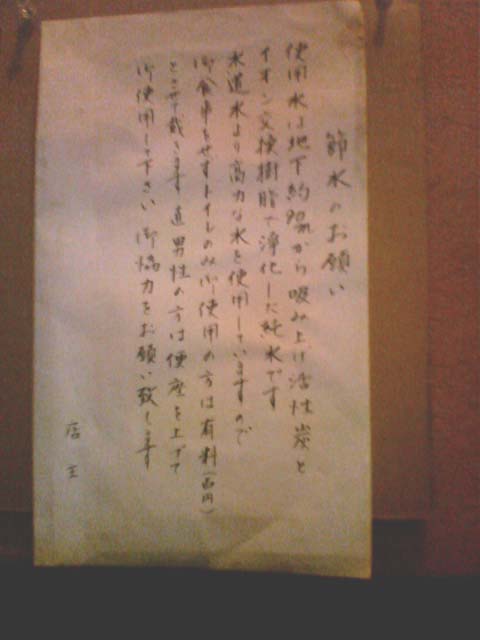 節水のお願い
使用水は地下約90mから吸み上げ活性炭と
イオン交換樹脂で浄化した純水です
水道水より高力な水を使用していますので
御食事もせずトイレのみ御使用の方は有料(百円)
とさせて戴きます 道男性の方は便座を上げて
御使用して下さい 御協力をお願い致します
店主